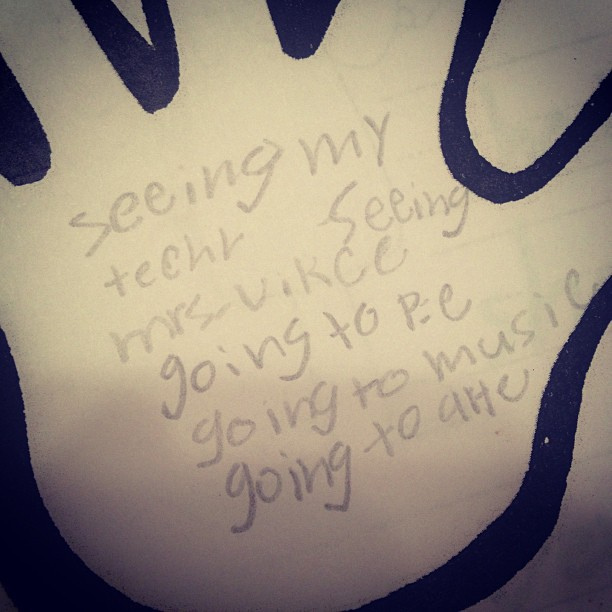 seeing my
techr seeing
mrs. vikce
going to p.e
going to music
going to arte